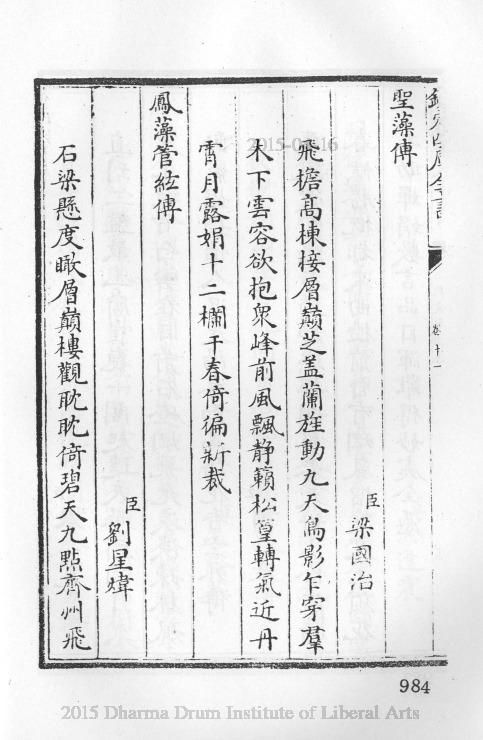 欽定四庫全書
卷十一
聖藻傳
臣梁國治
飛檐高棟接層巔芝盖蘭旌動九天鳥影乍穿羣
木下雲容欲抱衆峰前風飄静籟松篁轉氣近丹
霄月露娟十二欄干春倚徧新裁
鳳藻管絃傳
臣劉星煒
石梁懸度瞰層巔樓觀眈眈倚碧天九點齊州飛
984
2015 Dharma Drum Institute of Liberal Arts